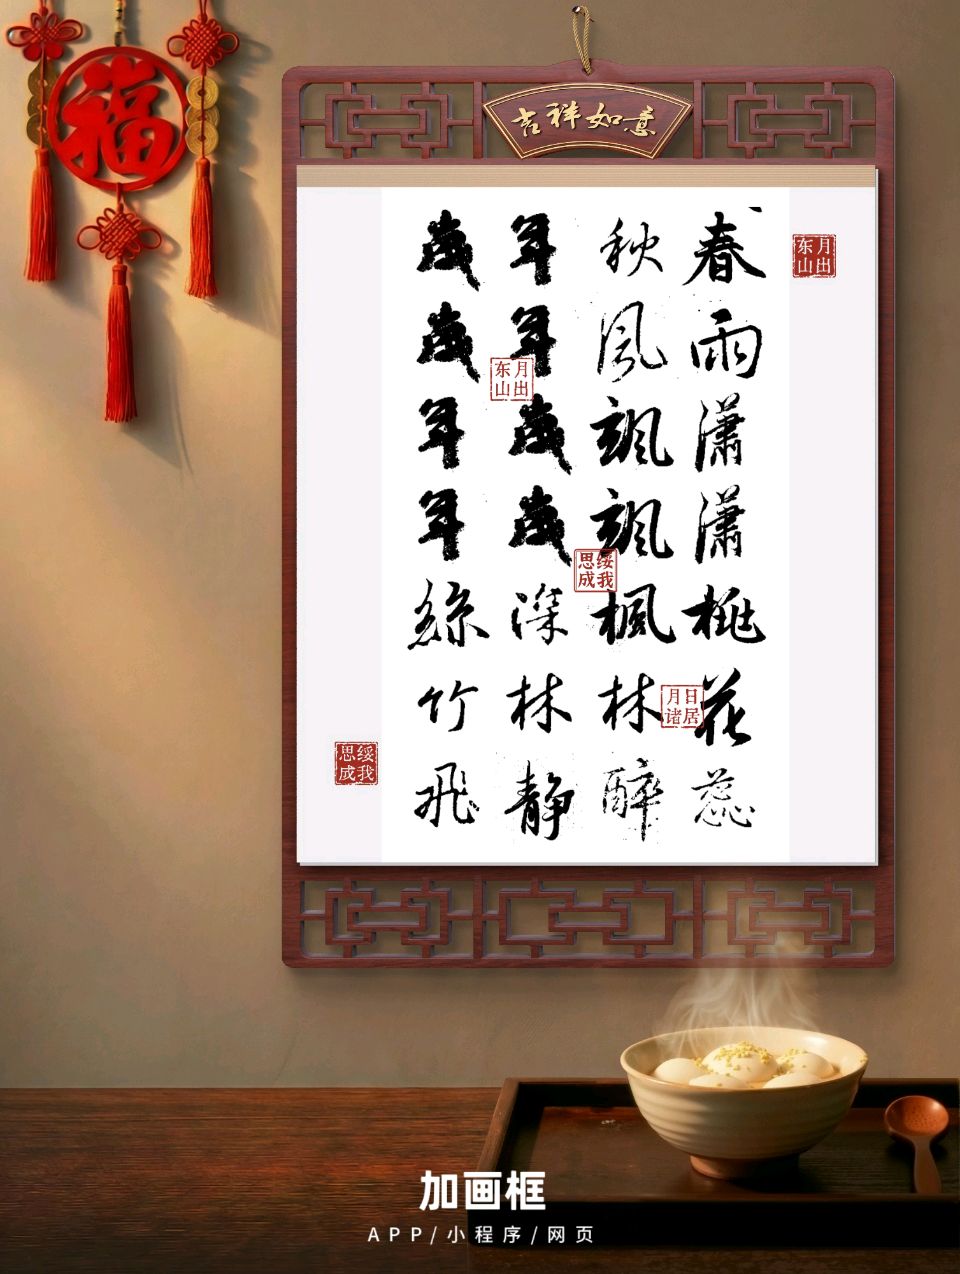 福
吉祥如意
月出东山
春雨潇潇桃花蕊
秋风飒飒枫林醉
年年歲歲深林静
歲歲年年絲竹飛
月出东山
绥我思成
日居月诸
绥我思成
加画框
APP/小程序/网页